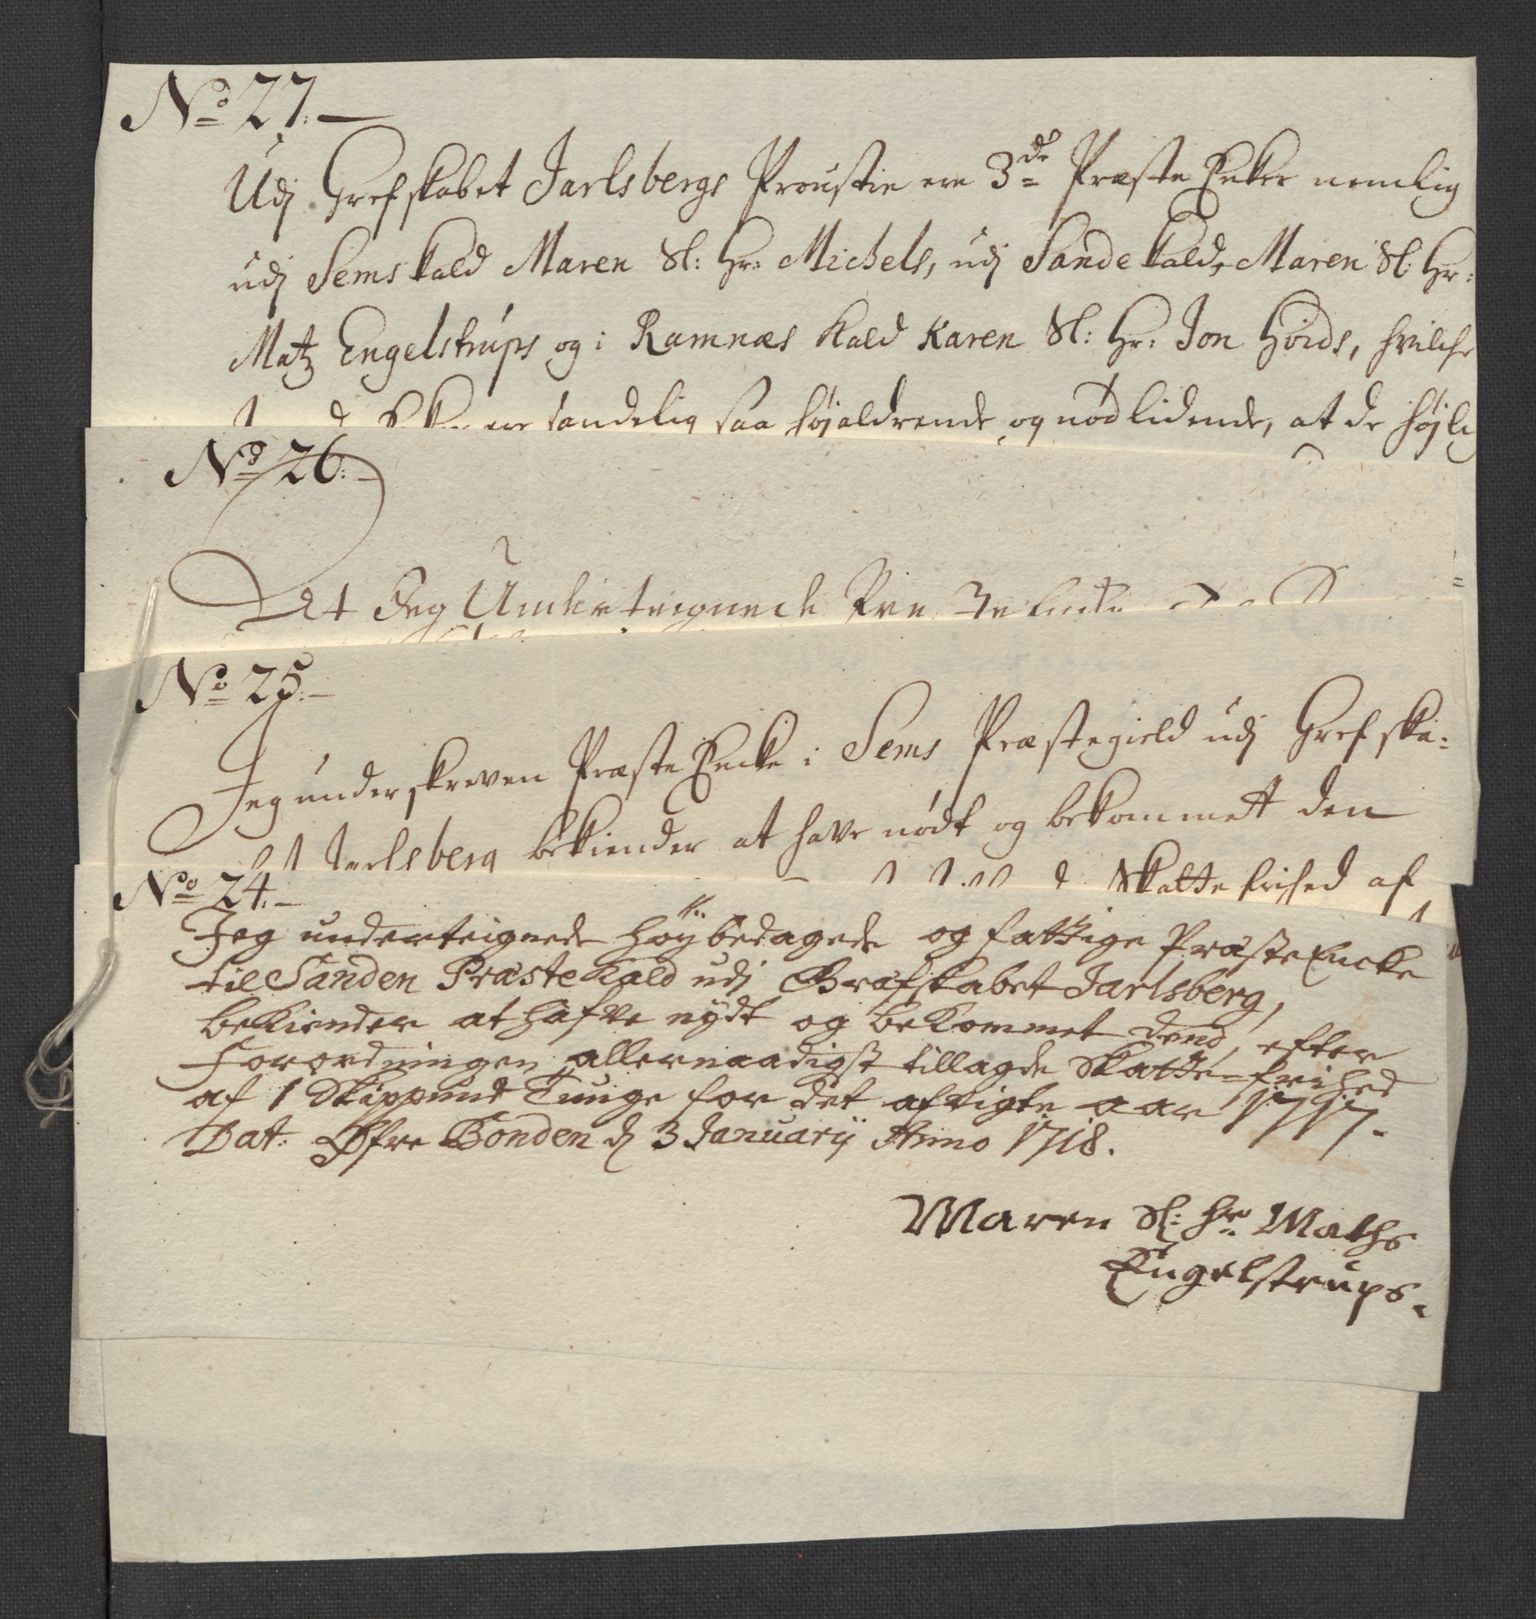 No 27.
Udj Grefskabet Jarlsbergs Proustie ere 3de Præste Encker nemlig
udj Sems kald Maren Sl: Hr: Michels, udj Sande kald, Maren Sl: Hr:
Matz Engelstrups og i Ramnæs kald Karen Sl: Hr: Jon Höids, hvilche
sandelig saa højaldrende og nødlidende, at de højlig
No 26.
Det Jeg Underteignede
No 25.
Jeg underskreven Præste Encke i Sems Præstegield udj Grefska-
Jarlsberg bekiender at have nødt og bekommet den
Skatte frihed af
No 24.
Jeg underteignede höÿbedagede og fattige Præste Encke
til Sanden Præste Kald udj Græfskabet Jarlsberg,
bekiender at hafve nÿdt og bekommet dend, efter
Forordningen, allernaadigst tillagde Skatte-frihed
af 1 Skippund Tunge for det afvigte aar 1717.
Dat. Øfre Bonden d 3 Januarij Anno 1718.
Maren Sl: Hr Maths
Engelstrups.